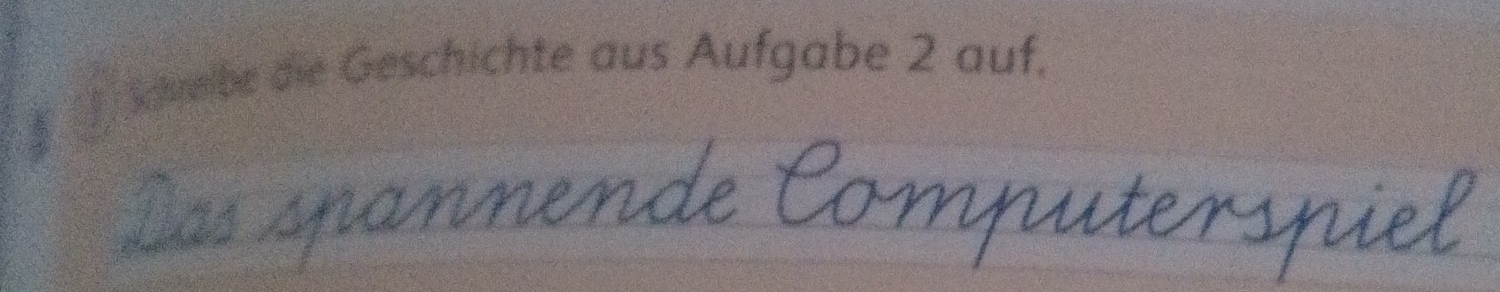 Schreibe die Geschichte aus Aufgabe 2 auf.
Das spannende Computerspiel